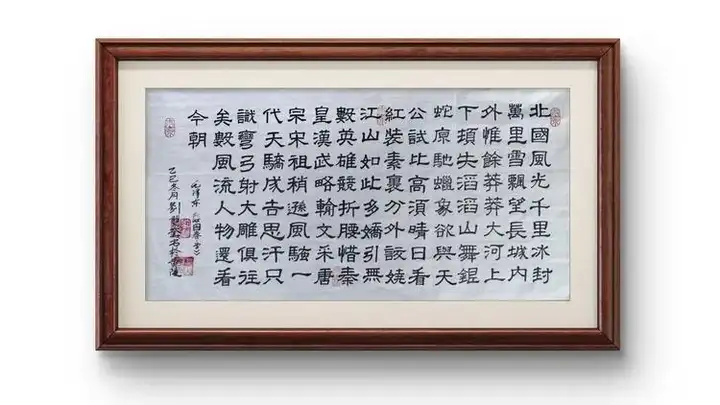 北國風光千里冰封
萬里雪飄望長城内
外惟餘莽莽大河上
下頓失滔滔山舞銀
蛇原馳蠟象欲與天
公試比高須晴日看
紅裝素裹分外妖嬈
江山如此多嬌引無
數英雄競折腰惜秦
皇漢武略輸文采唐
宗宋祖稍遜風騷一
代天驕成吉思汗只
識彎弓射大雕俱往
矣數風流人物還看
今朝
毛澤東沁園春雪
乙巳冬月劉